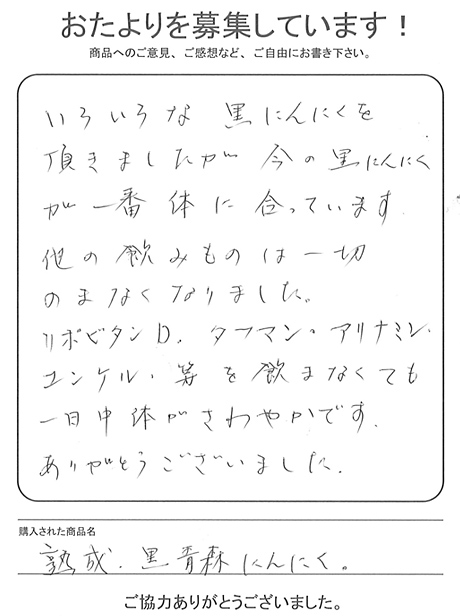 おたよりを募集しています！
商品へのご意見、ご感想など、ご自由にお書き下さい。
いろいろな 黒にんにくを
頂きましたが 今の黒にんにく
が一番 体に 合っています
他の飲みものは一切
のまなくなりました。
リポビタンD. タフマン・アリナミン.
ユンケル・等を飲まなくても
一日中体がさわやかです.
ありがとうございました.
購入された商品名
熟成. 黒青森にんにく。
ご協力ありがとうございました。